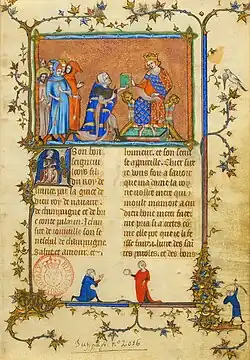 A Son bon
seigneur
looys filz
du roy de
france par la grace de
dieu roy de nauarre
de champaigne et de bri
conte palazin. Jehan
sire de ioinuille son se
neschal de champaigne
Salut et amour et
honneur et son serui
se appareille. Chier si
re ie vous foiz a sauoir
que ma dame la roy
ne vostre mere qui
moult mamoit a cui
dieu bone merci face
me pria si a certes co
me elle pot que ie li fe
isse faire .i. liure des sai
tes paroles et des bons
Suppl. fr. n° 2016